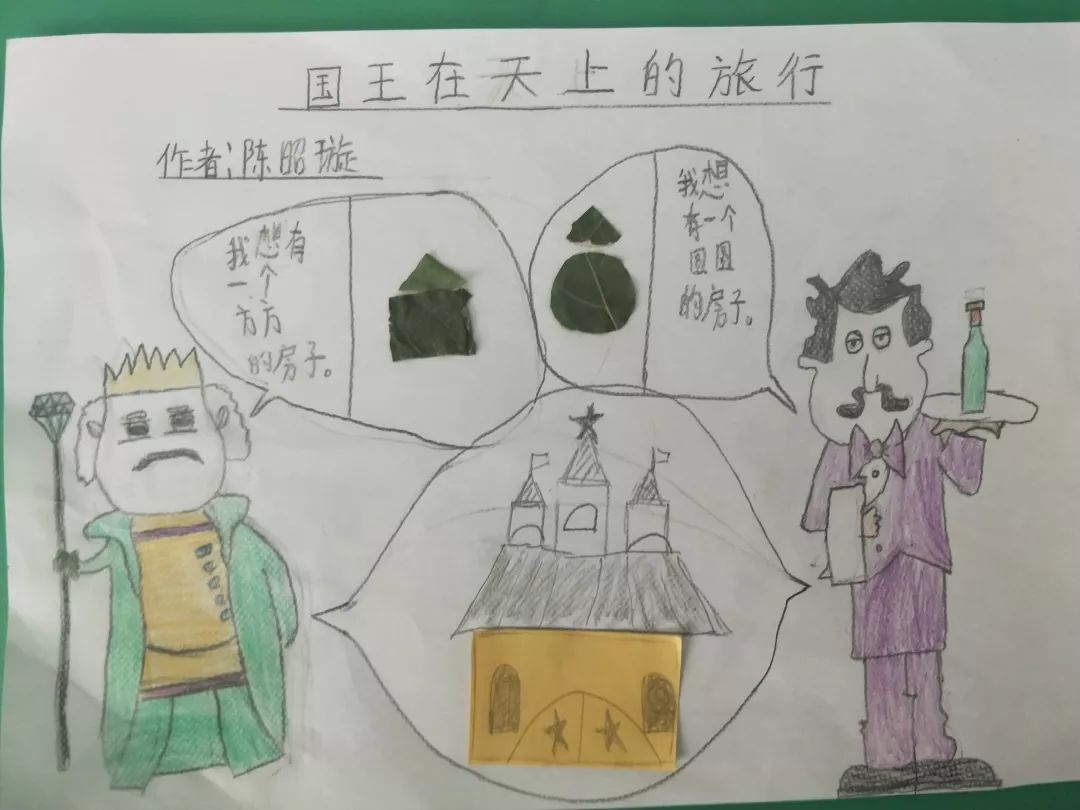 国王在天上的旅行
作者:陈昭璇
我想有
一个
方方
的房子。
我想
有一个
圆圆
的房子。